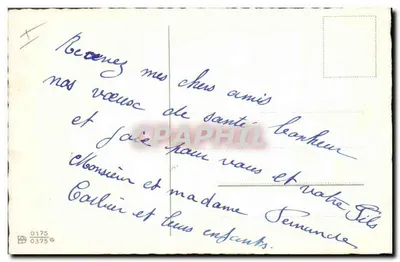 Recevez mes chers amis
nos vœux de santé bonheur
et Joie pour vous et votre Fils
Monsieur et madame
et leurs enfants.
CPAPHIL
0175
0375